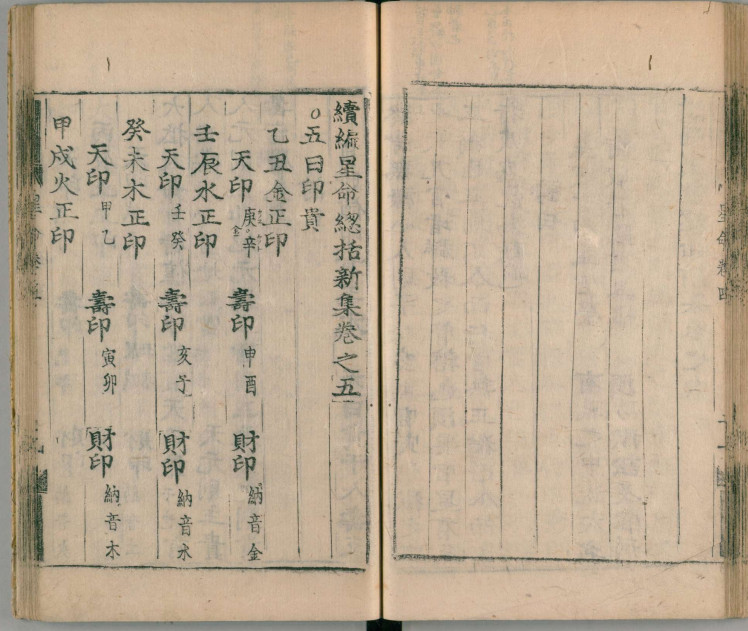 星命卷四
續編星命總括新集卷之五
○五曰印貴
乙丑金正印
天印 庚辛金 壽印 申酉 財印 納音金
壬辰水正印
天印 壬癸 壽印 亥子 財印 納音水
癸未木正印
天印 甲乙 壽印 寅卯 財印 納音木
甲戌火正印
星命卷五